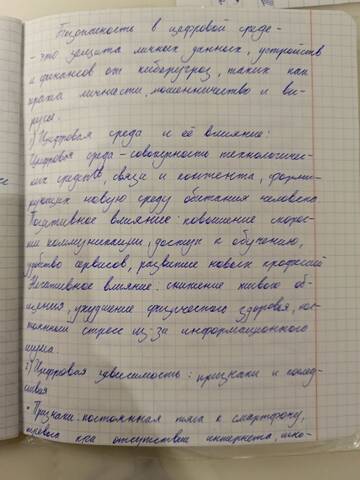 Безопасность в цифровой среде -
- это защита личных данных, устройств
и финансов от киберугроз, таких как
кража личности, мошенничество и ви-
русы.
1) Цифровая среда и её влияние:
Цифровая среда - совокупность технологичес-
ких средств, связи и контента, форми-
рующих новую среду обитания человека.
Позитивное влияние: повышение скорос-
ти коммуникации, доступ к обучению,
удобство сервисов, развитие новых профессий
Негативное влияние: снижение живого об-
щения, ухудшение физического здоровья, пос-
тоянный стресс из-за информационного
шума.
2) Цифровая зависимость: признаки и послед-
ствия
- Признаки: постоянная тяга к смартфону,
тревога при отсутствии интернета,